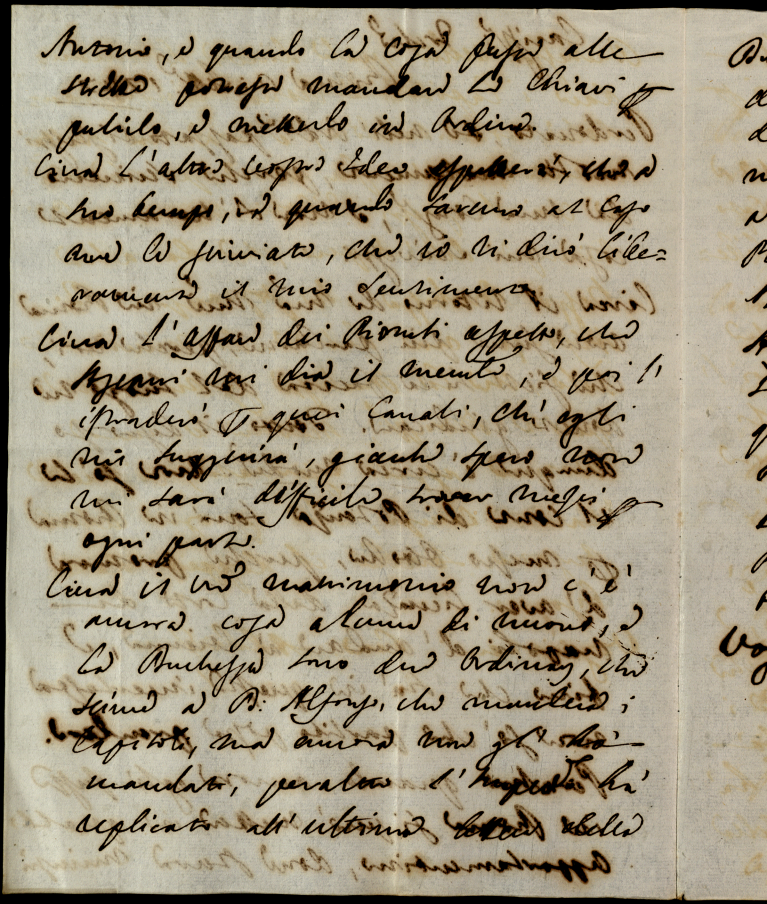 Antonio, e quando la cosa fusse alle
strette potresse mandare le Chiavi p
pulirlo, e metterlo in Ordine.
Circa l'altra vostra Idea aspetterei, che a
suo tempo, e quando saremo al Caso
me lo scriviate, che io vi dirò libe=
ramente il mio sentimento
Circa l'affare dei Pioneti aspetto, che
mi dia il memle, e poi l'
istraderò p quei Canali, che egli
mi suggerirà, giacche spero non
mi sarà difficile trovar mezzi p
ogni parte.
Circa il vro matrimonio non c'è
ancora cosa alcuna di nuovo, e
la Duchessa sono due Ordinarj, che
scrive a D: Alfonso, che manderà i
Capitoli, ma ancora non gl'ha
mandati, peraltro l' hà
replicato all'ultima lettera della